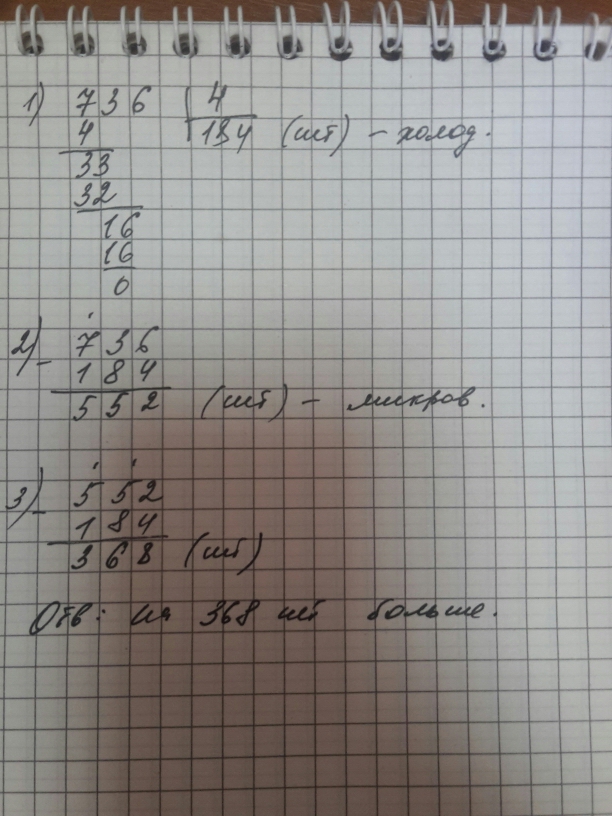 1) 736 | 4
4 184 (шт) - холод.
33
32
16
16
0
2) - 736
184
552 (шт) - микров.
3) - 552
184
368 (шт)
Отв: на 368 шт больше.